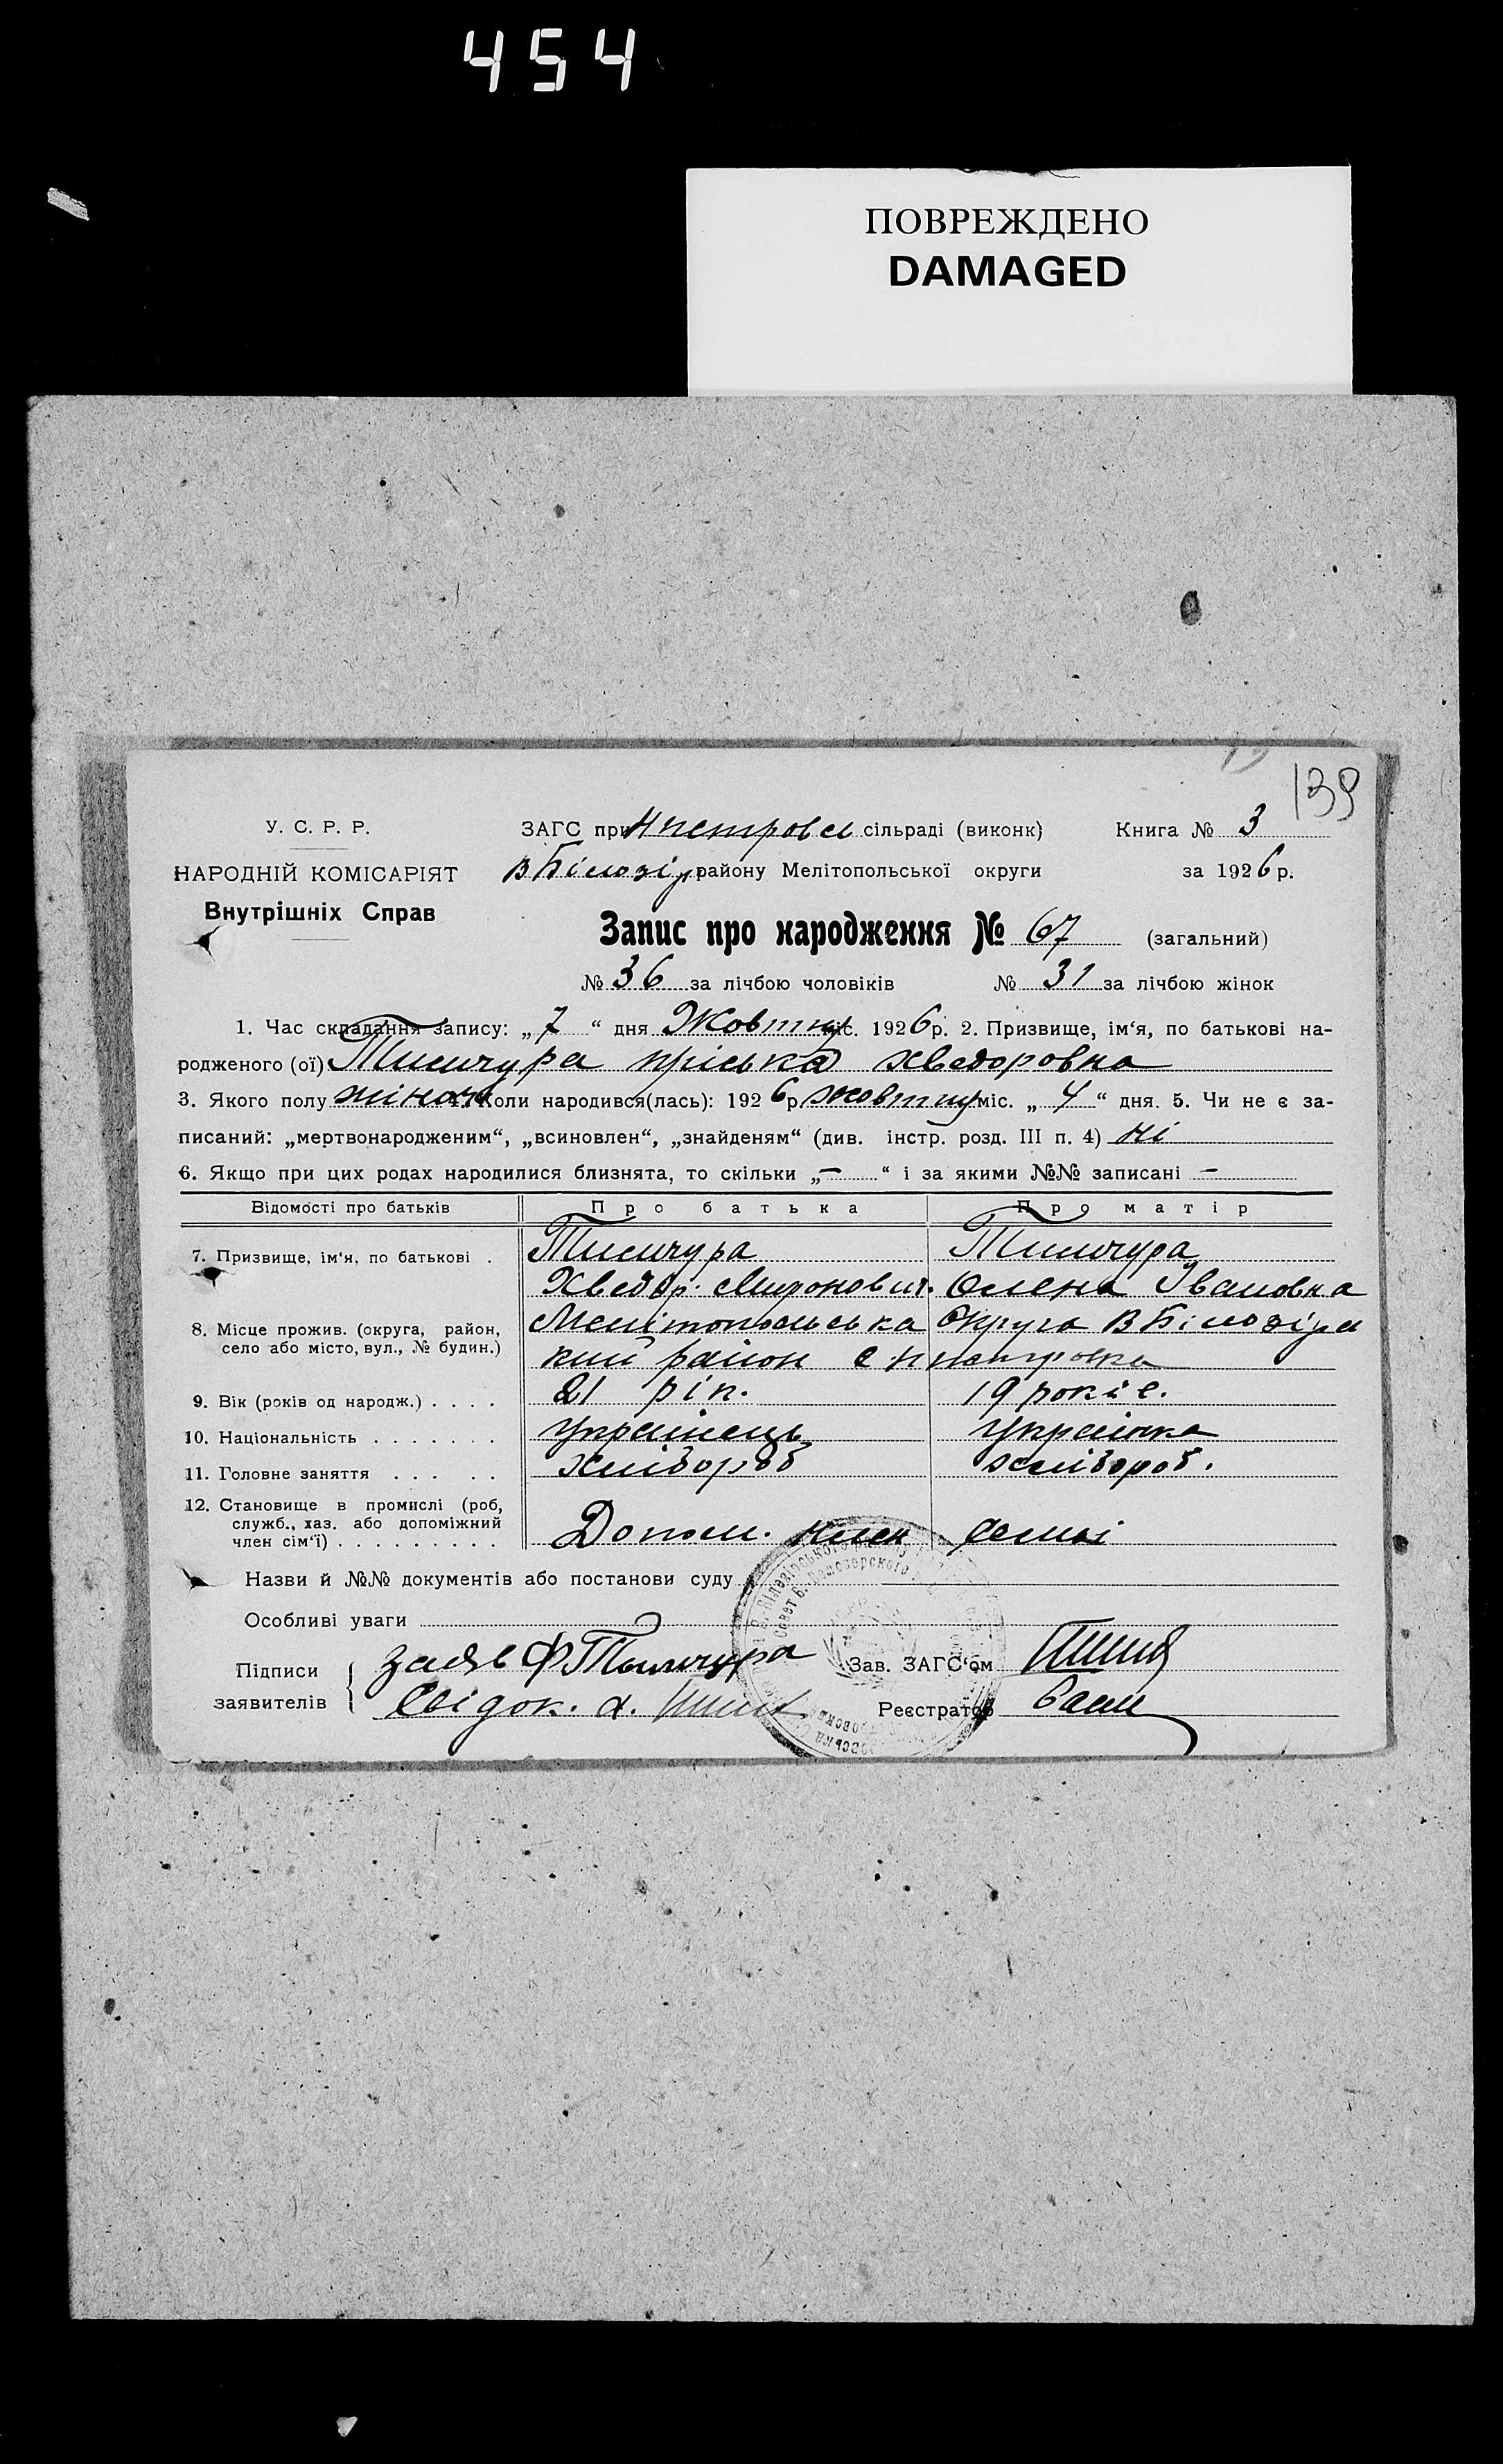 454
ПОВРЕЖДЕНО
DAMAGED
139
У. С. Р. Р.
ЗАГС при Нпетровсь сільраді (виконк) Книга № 3
НАРОДНІЙ КОМІСАРІЯТ
В Білозір району Мелітопольської округи за 1926 р.
Внутрішніх Справ
Запис про народження № 67 (загальний)
№ 36 за лічбою чоловіків № 31 за лічбою жінок
1. Час складання запису: „ 7 “ дня Жовтну міс. 1926 р. 2. Призвище, ім‘я, по батькові на-
родженого (ої) пріська хведоровна
3. Якого полу жіноч 4. Коли народився(лась): 1926 р. жовтну міс. „ 4 “ дня. 5. Чи не є за-
писаний: „мертвонародженим“, „всиновлен“, „знайденям“ (див. інстр. розд. III п. 4) ні
6. Якщо при цих родах народилися близнята, то скільки „ — “ і за якими №№ записані —
Відомості про батьків Про батька Про матір
7. Призвище, ім‘я, по батькові .
Хведор Миронович. Олена Івановна
8. Місце прожив. (округа, район,
село або місто, вул., № будин.)
Мелітопольська Округа В Білозірсь
кий район с нпетровка
9. Вік (років од народж.) . . . . 21 рік. 19 років.
10. Національність . . . . . . . Українець Українка
11. Головне заняття . . . . . хлібороб хлібороб.
12. Становище в промислі (роб,
служб., хаз. або допоміжний
член сім‘ї) . . . . . . . . . Допом. член семьі
Назви й №№ документів або постанови суду
Особливі уваги
Підписи
заявителів
заяв Ф.
Зав. ЗАГС‘ом
Свідок.
Реєстратор